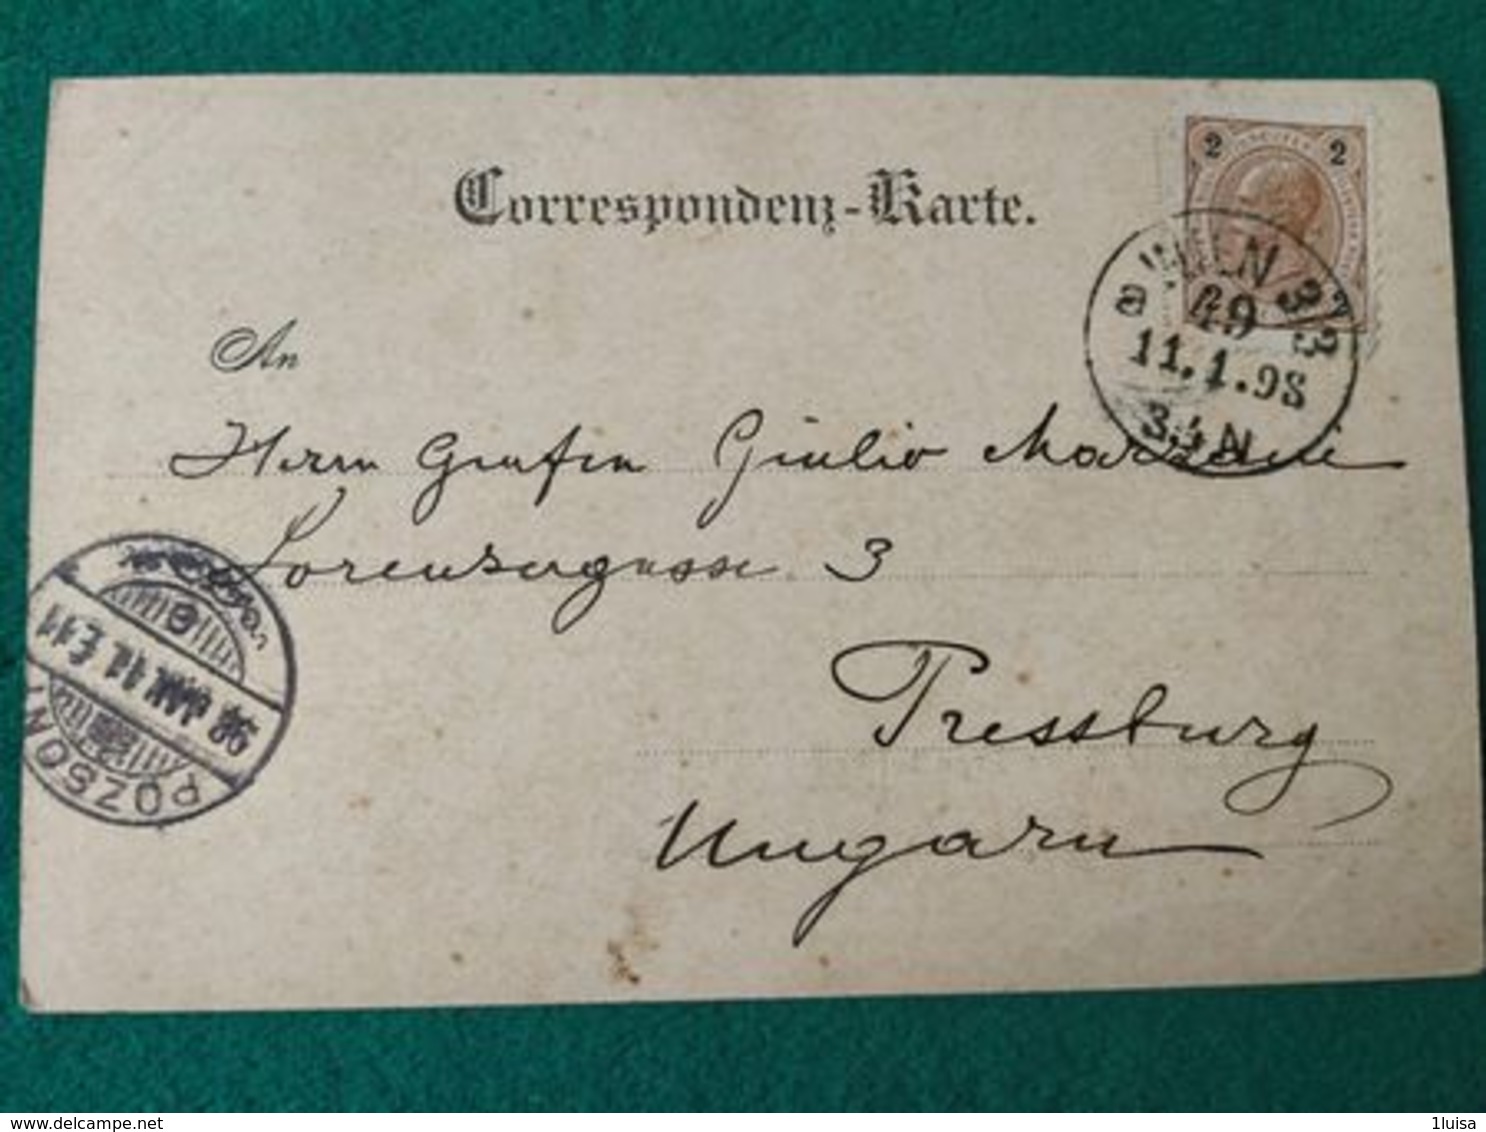 Correspondenz-Karte.
2 2
WIEN 3/3
49
a
11.1.98
3.4N
An
Herrn Grafen Giulio
Lorenzergasse 3
98 JAN. 11. E. 11
POZSONY
Pressburg
Ungarn
delcampe.net
1luisa